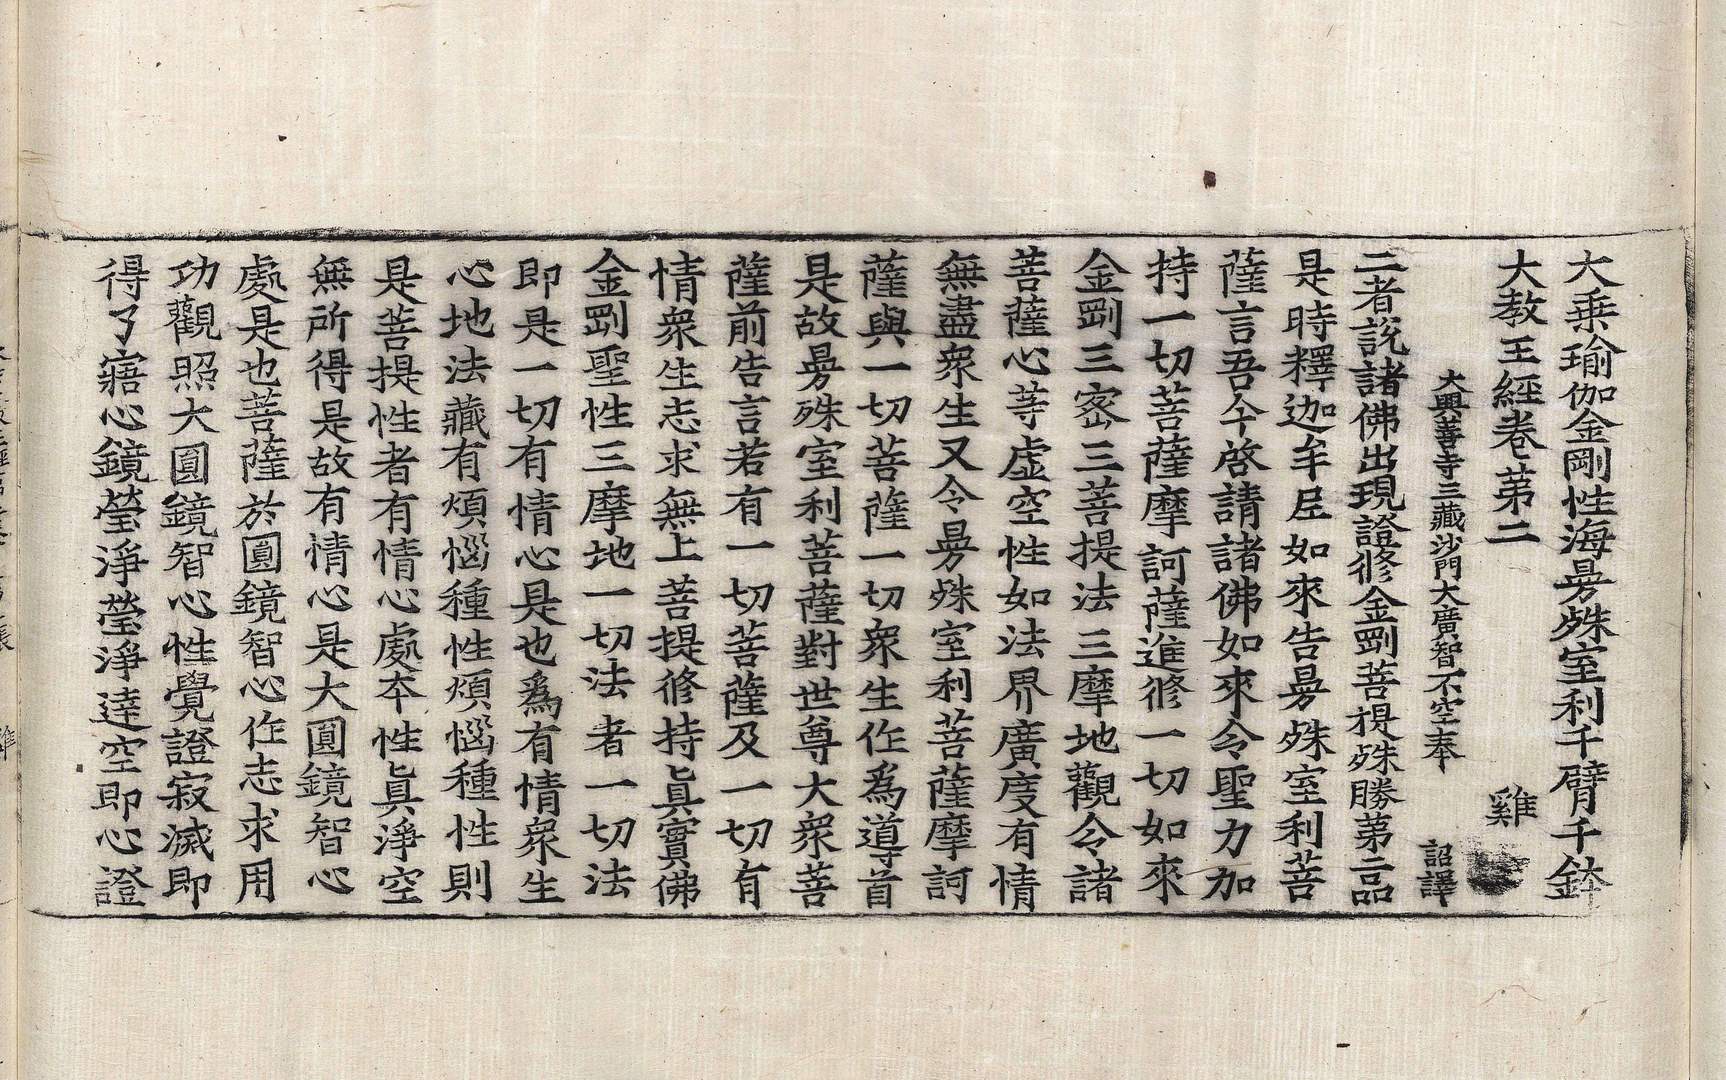 大乗瑜伽金剛性海曼殊室利千臂千鉢
大教王經卷第二
雞
大興善寺三藏沙門大廣智不空奉 詔譯
二者說諸佛出現證修金剛菩提殊勝第二品
是時釋迦牟尼如來告曼殊室利菩
薩言吾今啓請諸佛如來令聖力加
持一切菩薩摩訶薩進修一切如來
金剛三密三菩提法三摩地觀令諸
菩薩心等虛空性如法界廣度有情
無盡衆生又令曼殊室利菩薩摩訶
薩與一切菩薩一切衆生作爲導首
是故曼殊室利菩薩對世尊大衆菩
薩前告言若有一切菩薩及一切有
情衆生志求無上菩提修持真實佛
金剛聖性三摩地一切法者一切法
即是一切有情心是也爲有情衆生
心地法藏有煩惱種性煩惱種性則
是菩提性者有情心處本性真淨空
無所得是故有情心是大圓鏡智心
處是也菩薩於圓鏡智心作志求用
功觀照大圓鏡智心性覺證寂滅即
得了寤心鏡瑩淨瑩淨達空即心證